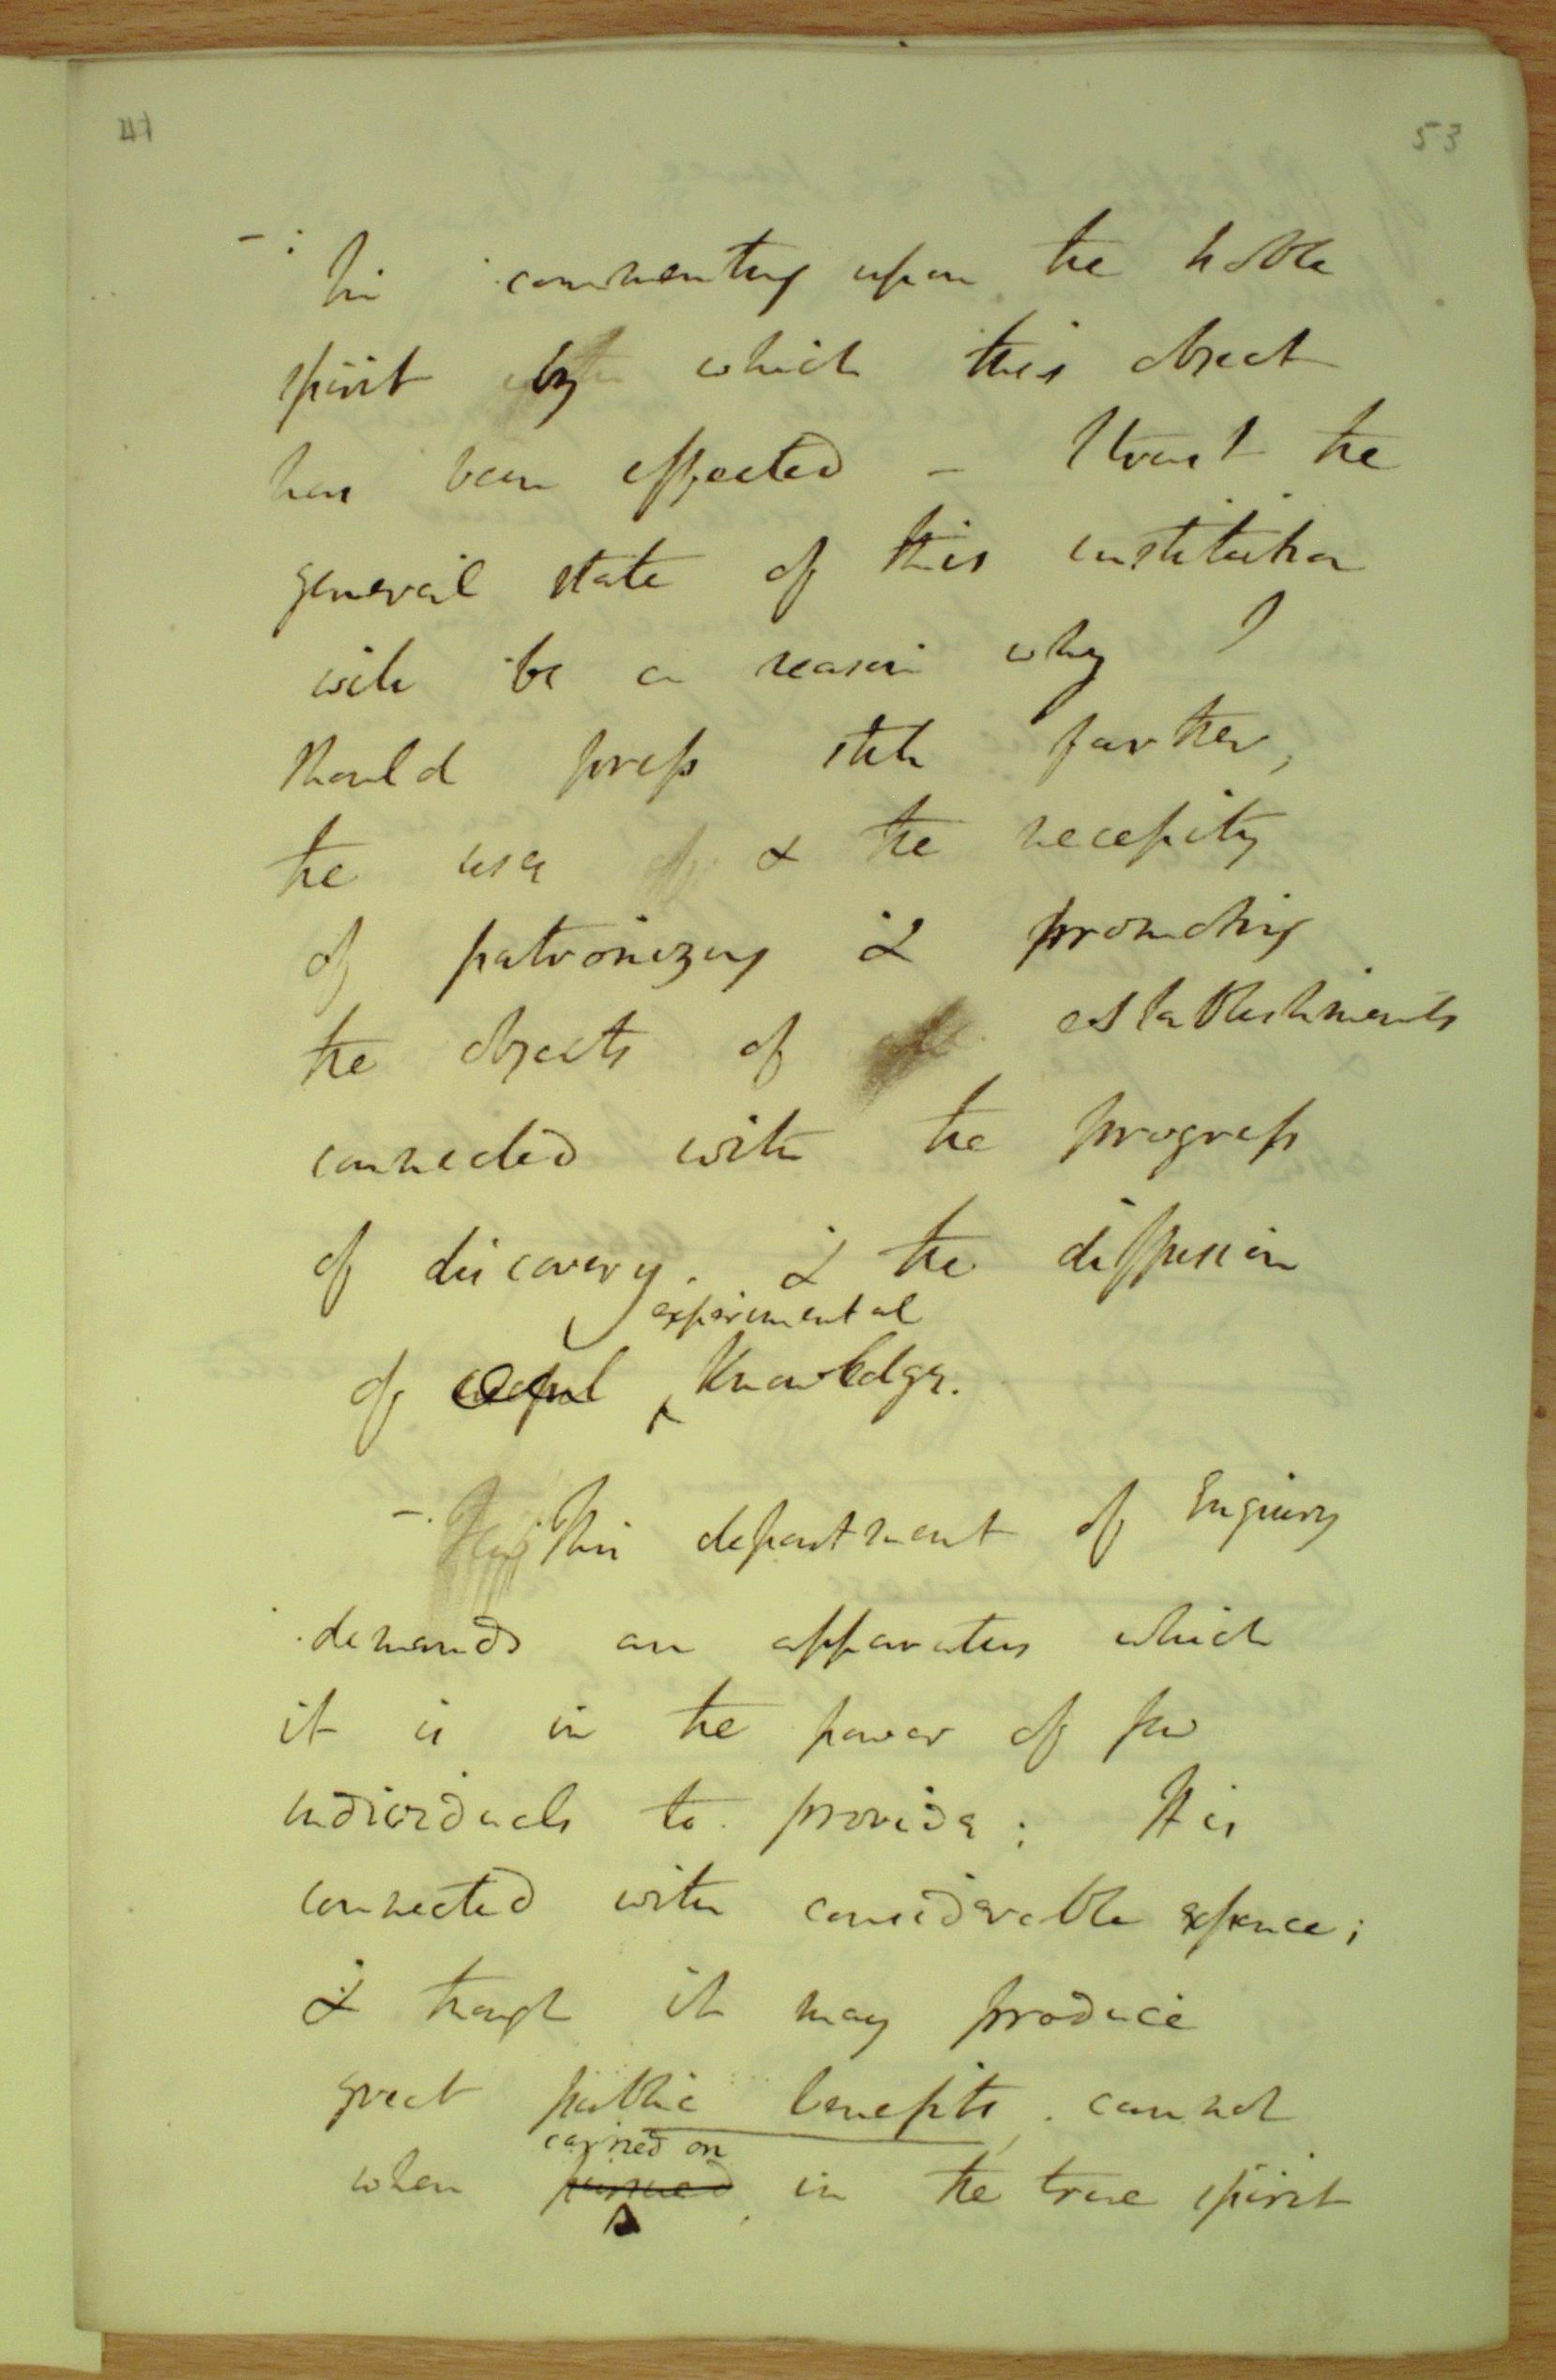 41 53
- : In commenting upon the noble
spirit by which this object
has been effected – I trust the
general state of this institution
will be a reason why I
should press still farther,
the use & the necessity
of patronizing & promoting
the objects of establishments
connected with the progress
of discovery. & the diffusion
experimental
of useful Knowledge.
-. This department of Enquiry
demands an apparatus which
it is in the power of few
individuals to provide: It is
connected with considerable expence;
& though it may produce
great public benefits, cannot
carried on
when pursued, in the true spirit